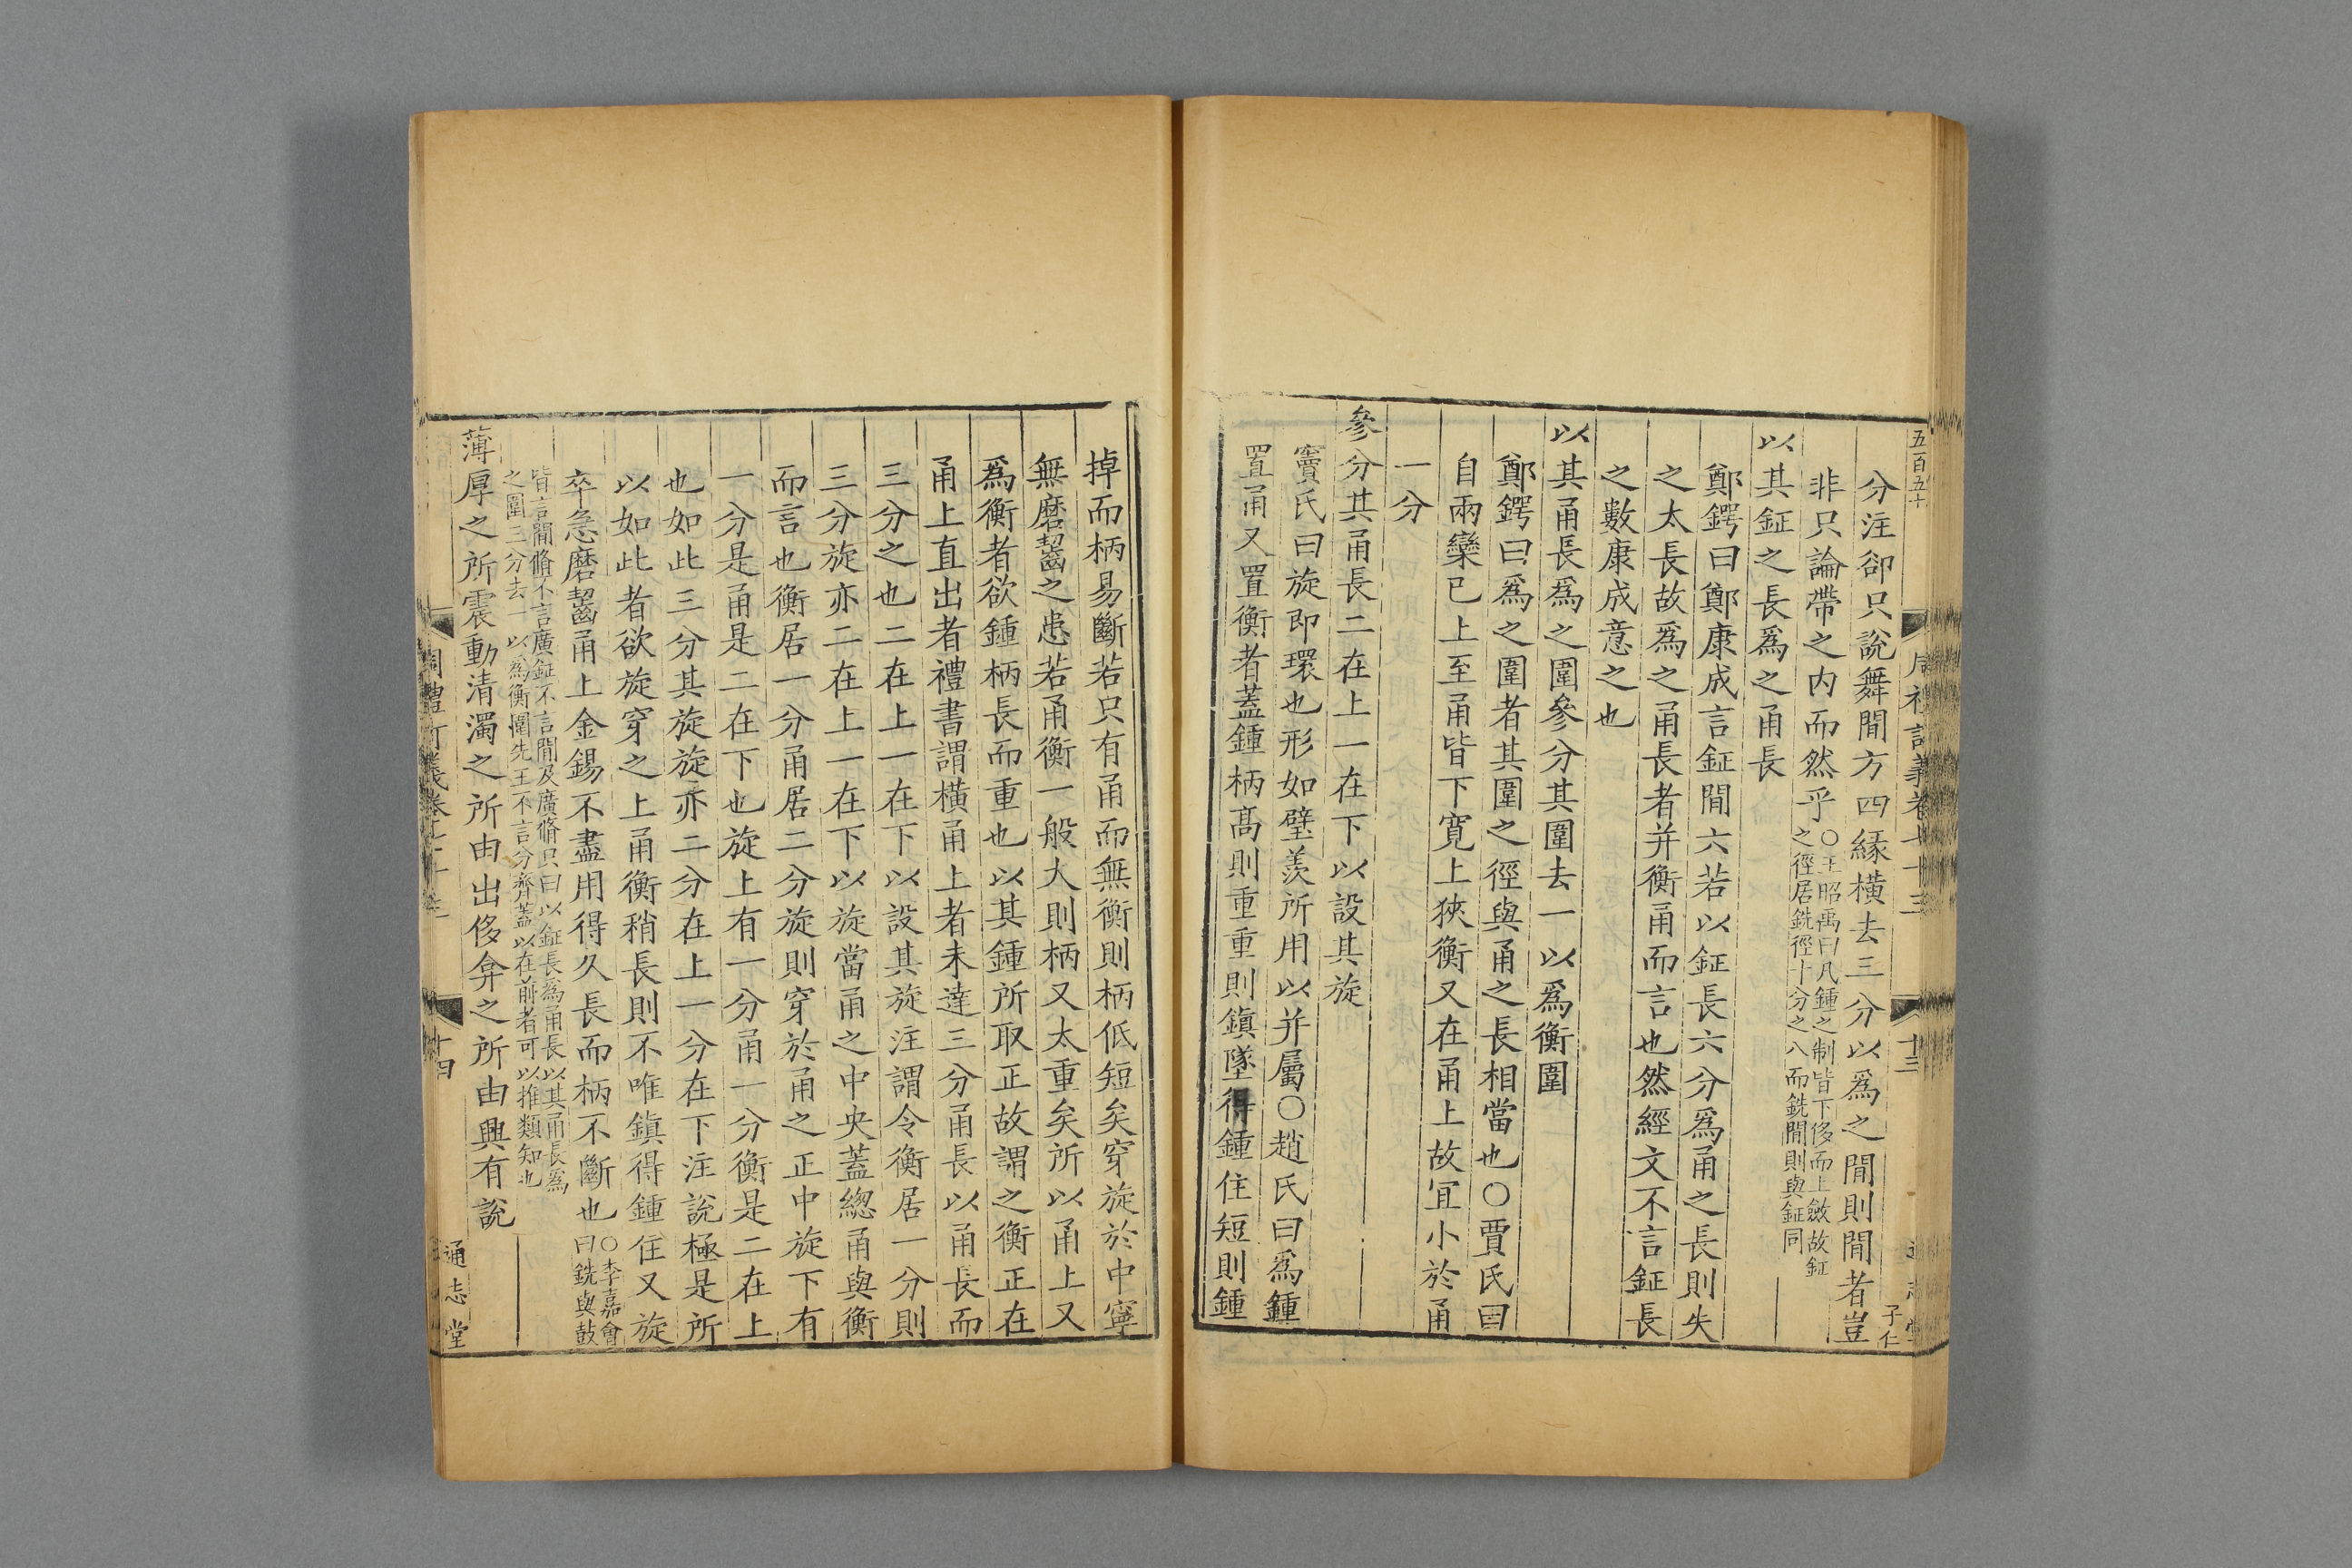 五百五十
周禮訂義卷七十三
十三
子仁
分注卻只說舞閒方四緣橫去三分以爲之閒則閒者豈
非只論帶之内而然乎○王昭禹曰凡鍾之制皆下侈而上斂故鉦
之徑居銑徑十分之八而銑閒則與鉦同
以其鉦之長爲之甬長
鄭鍔曰鄭康成言鉦閒六若以鉦長六分爲甬之長則失
之太長故爲之甬長者并衡甬而言也然經文不言鉦長
之數康成意之也
以其甬長爲之圍參分其圍去一以爲衡圍
鄭鍔曰爲之圍者其圍之徑與甬之長相當也○賈氏曰
自兩欒已上至甬皆下寬上狹衡又在甬上故宜小於甬
一分
參分其甬長二在上一在下以設其旋
竇氏曰旋即環也形如璧羨所用以并屬○趙氏曰爲鍾
置甬又置衡者蓋鍾柄高則重重則鎭墜得鍾住短則鍾
掉而柄易斷若只有甬而無衡則柄低短矣穿旋於中寧
無磨齧之患若甬衡一般大則柄又太重矣所以甬上又
爲衡者欲鍾柄長而重也以其鍾所取正故謂之衡正在
甬上直出者禮書謂橫甬上者未達三分甬長以甬長而
三分之也二在上一在下以設其旋注謂令衡居一分則
三分旋亦二在上一在下以旋當甬之中央蓋總甬與衡
而言也衡居一分甬居二分旋則穿於甬之正中旋下有
一分是甬是二在下也旋上有一分甬一分衡是二在上
也如此三分其旋旋亦二分在上一分在下注說極是所
以如此者欲旋穿之上甬衡稍長則不唯鎭得鍾住又旋
卒急磨齧甬上金錫不盡用得久長而柄不斷也○李嘉會
曰銑與鼓
皆言閒脩不言廣鉦不言閒及廣脩只曰以鉦長爲甬長以其甬長爲
之圍三分去一以爲衡圍先王不言分齊蓋以在前者可以推類知也
薄厚之所震動清濁之所由出侈弇之所由興有說
周禮訂義卷七十三
十四
通志堂